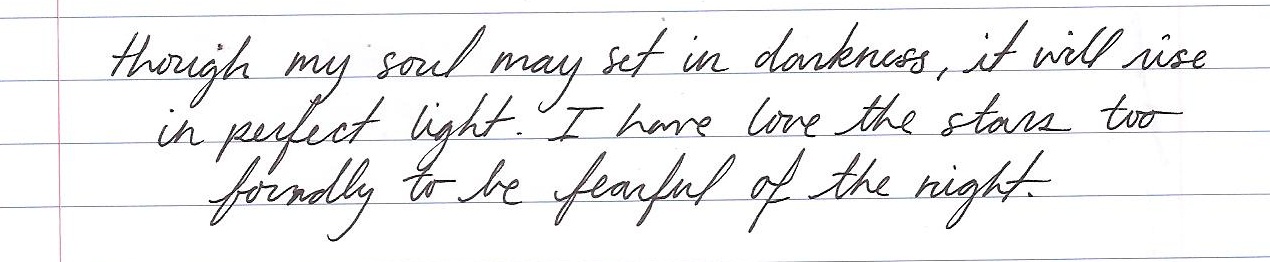 though my soul may set in darkness, it will rise
in perfect light. I have love the stars too
fondly to be fearful of the night.